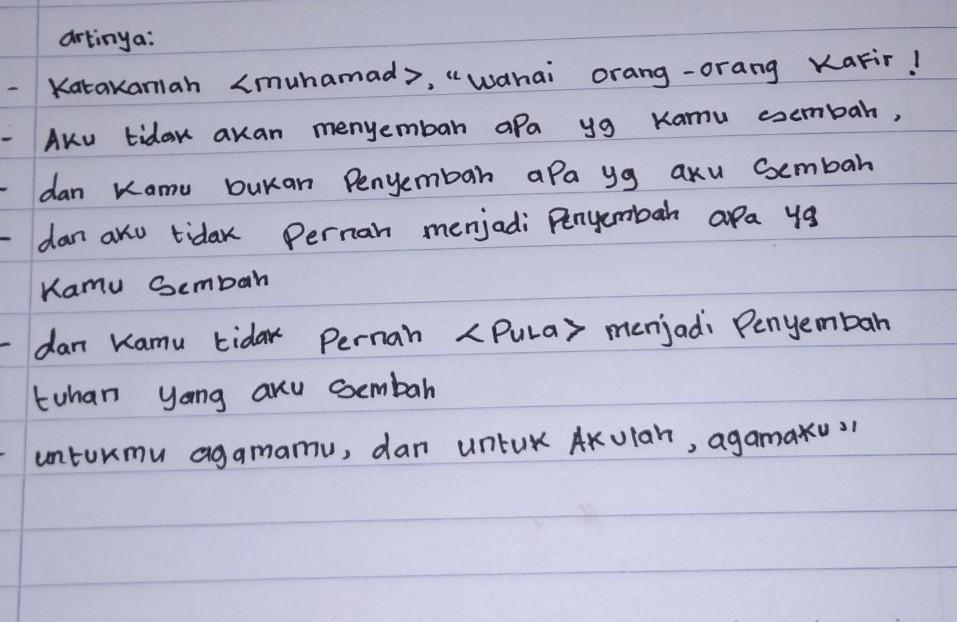 artinya:
- Katakanlah <muhamad>, "wahai orang-orang Kafir!
- Aku tidak akan menyembah apa yg kamu sembah,
- dan kamu bukan Penyembah apa yg aku sembah
- dan aku tidak Pernah menjadi Penyembah apa yg
kamu sembah
- dan kamu tidak Pernah <Pula> menjadi Penyembah
tuhan yang aku sembah
- untukmu agamamu, dan untuk Akulah, agamaku"